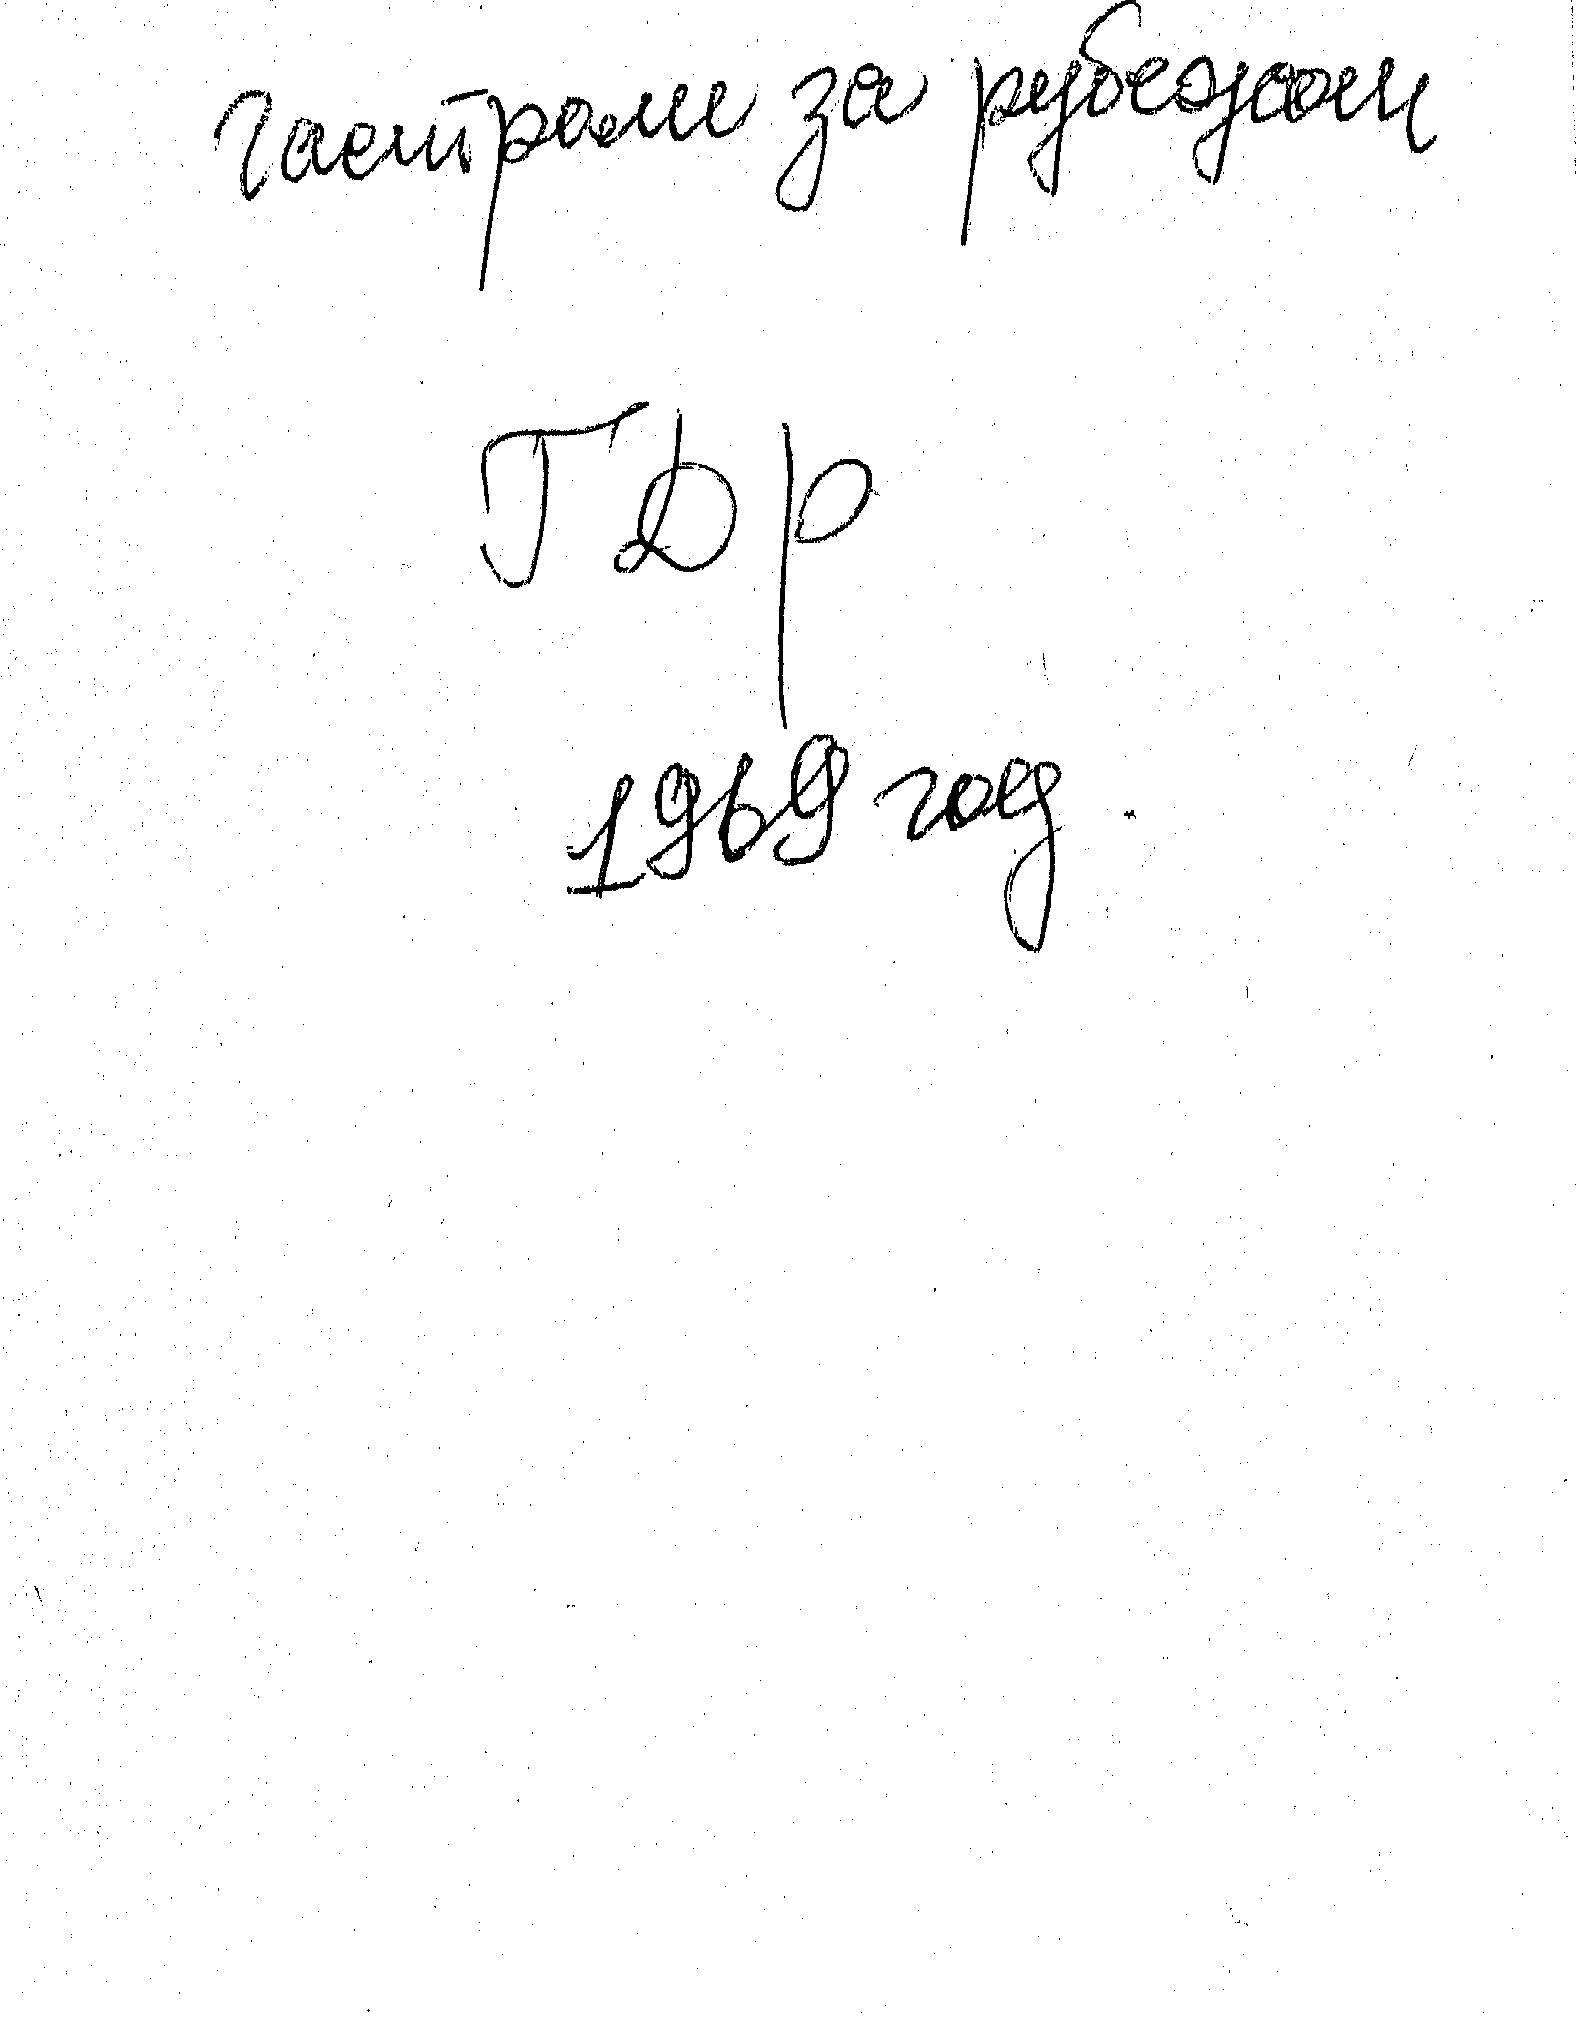 Гастроли за рубежом
ГДР
1969 год.